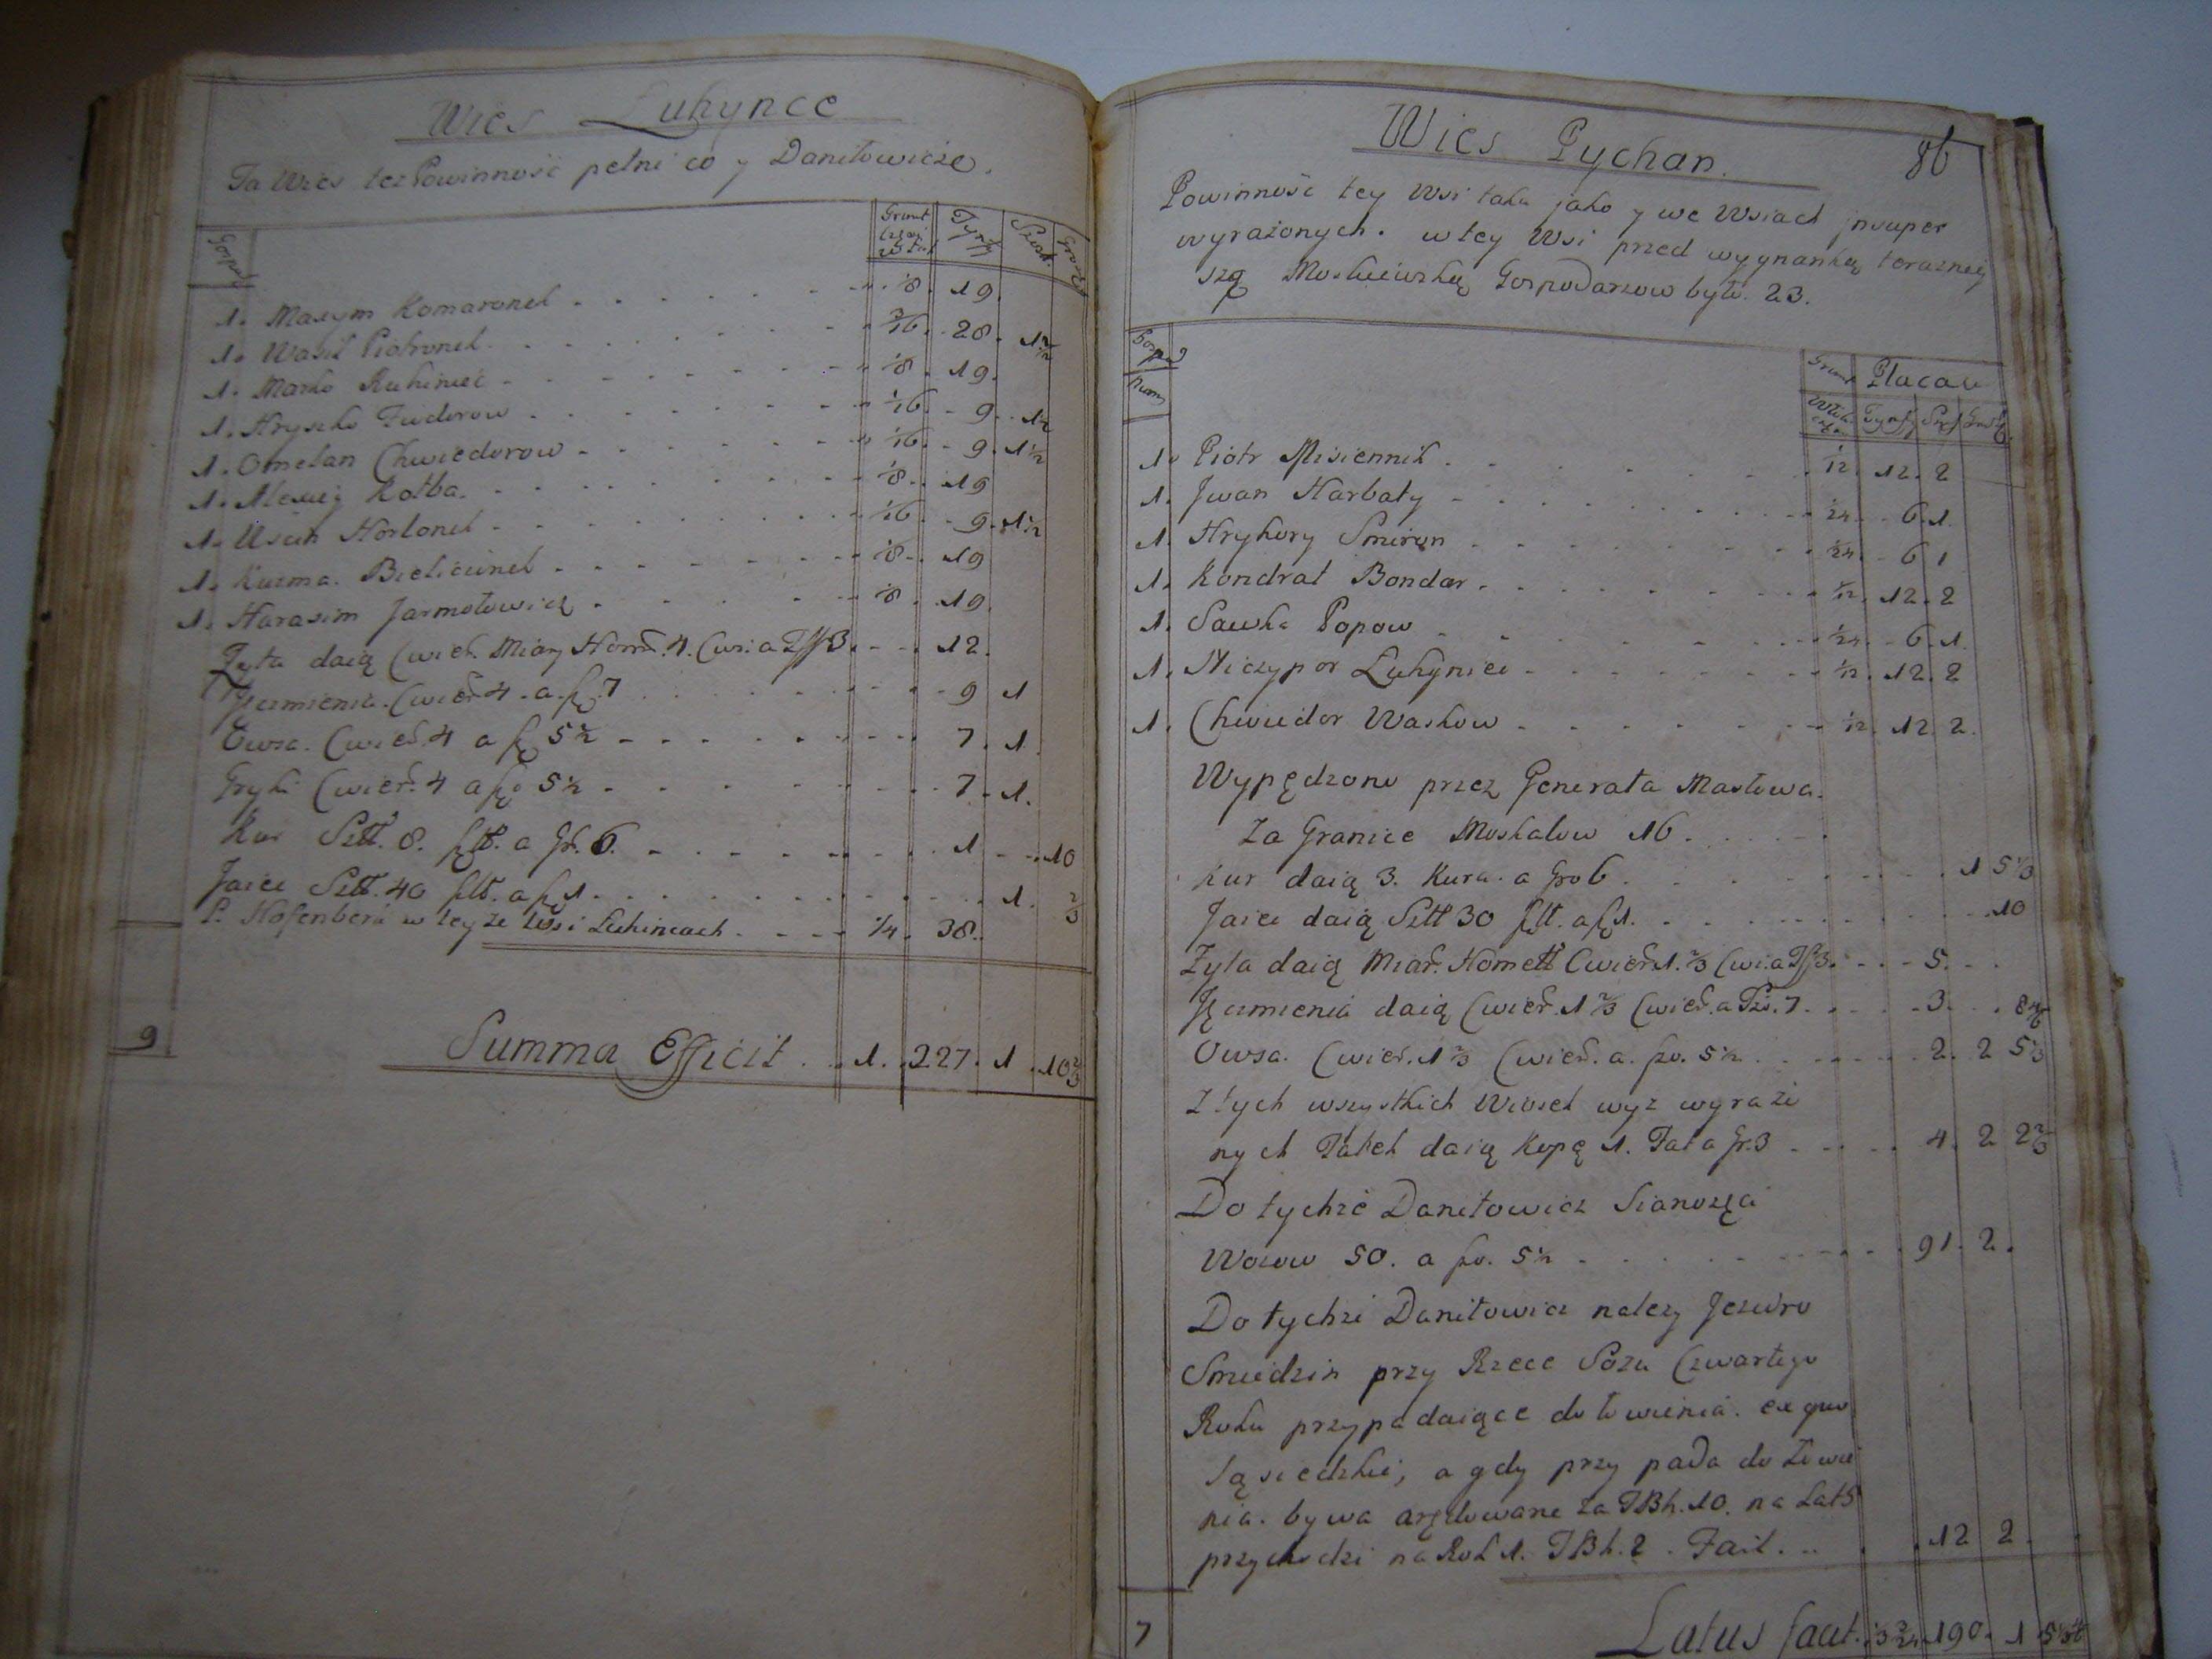 Wies Luhynce
Ta Wies tez Powinność pełni co y Daniłowicze.
Gospod Grunt Tynfy Szost. Groszy
1. Maxym Komaronek 1/8 19.
1. Wasil Piotronek 3/16 28. 1 1/2
1. Marko Ruhiniec 1/8 19.
1. Hryszko Fiedorow 1/16 9. 1 1/2
1. Omelan Chwiedorow 1/16 9. 1 1/2
1. Alexiej Kołba. 1/8 19
1. Uscin Horlonek 1/16 9. 1 1/2
1. Kuzma. Bieliciinek 1/8 19
1. Harasim Jarmołowicz 1/8 19.
Zyta daią Cwier. Miary Homel. 4. Cwi: a Tff 3. 12.
Jęczmienia. Cwier. 4. a. sz. 7 9 1
Owsa. Cwier. 4 a sz 5 1/2 7. 1.
Gryki Cwier. 4 a sz 5 1/2 7. 1.
Kur Sztt. 8. szt. a Gr. 6. 1 10
Jaiec Sztt. 40 szt. a sz 1. 1. 2/3
P. Hofenberg w teyze Wsi Luhincach. 1/4. 38.
9 Summa Efficit 1. 227. 1. 10 2/3
Wies Pychan. 86
Powinność tey Wsi taka jako y we Wsiach jnsuper
wyrażonych. w tey Wsi przed wygnanką terazniey
szą Moskiewską Gospodarzow było. 23.
Gospod Grunt Płacą
num Tynfy Szos Groszy
1. Piotr Misiennik 1/12. 12. 2
1. Jwan Harbaty 1/24 6. 1.
1. Hryhory Smiron 1/24 6 1
1. Kondrat Bondar 1/12. 12. 2
1. Sawka Popow 1/24 6. 1.
1. Niczypor Luhyniec 1/12 12. 2
1. Chwiedor Waskow 1/12 12. 2.
Wypędzono przez Generała Masłowa.
za Granice Moskalow 16.
Kur daią 3. Kura. a Gro 6 1 5 1/3
Jaiec daią Sztt 30 szt. a sz 1. 10
Zyta daią Miar. Homell Cwier. 1. 2/3 Cwi: a Tff 3. 5.
Jęczmienia daią Cwier. 1 2/3 Cwier. a Szo. 7. 3.
Owsa. Cwier. 1 2/3 Cwier. a. szo. 5 1/2 2. 2 5 1/3
Z tych wszystkich Wiosek wyz wyrażo
nych Tałek daią Kopę 1. Tał a Gr. 3 4. 2 2 2/3
Do tychże Daniłowicz Sianozęci
Wozow 50. a szo. 5 1/2 91. 2.
Do tychże Daniłowicz nalezy Jezioro
Smiedzin przy Rzece Sozu Czwartego
Roku przypadaiące do łowienia. ex quo
Sąsiedzkie, a gdy przypada do łowie
nia. bywa arędowane za TBh. 10. na Lat 5
przychodzi na Rok 1. TBh. 2. Facit. 12 2.
7 Latus facit. 190. 1